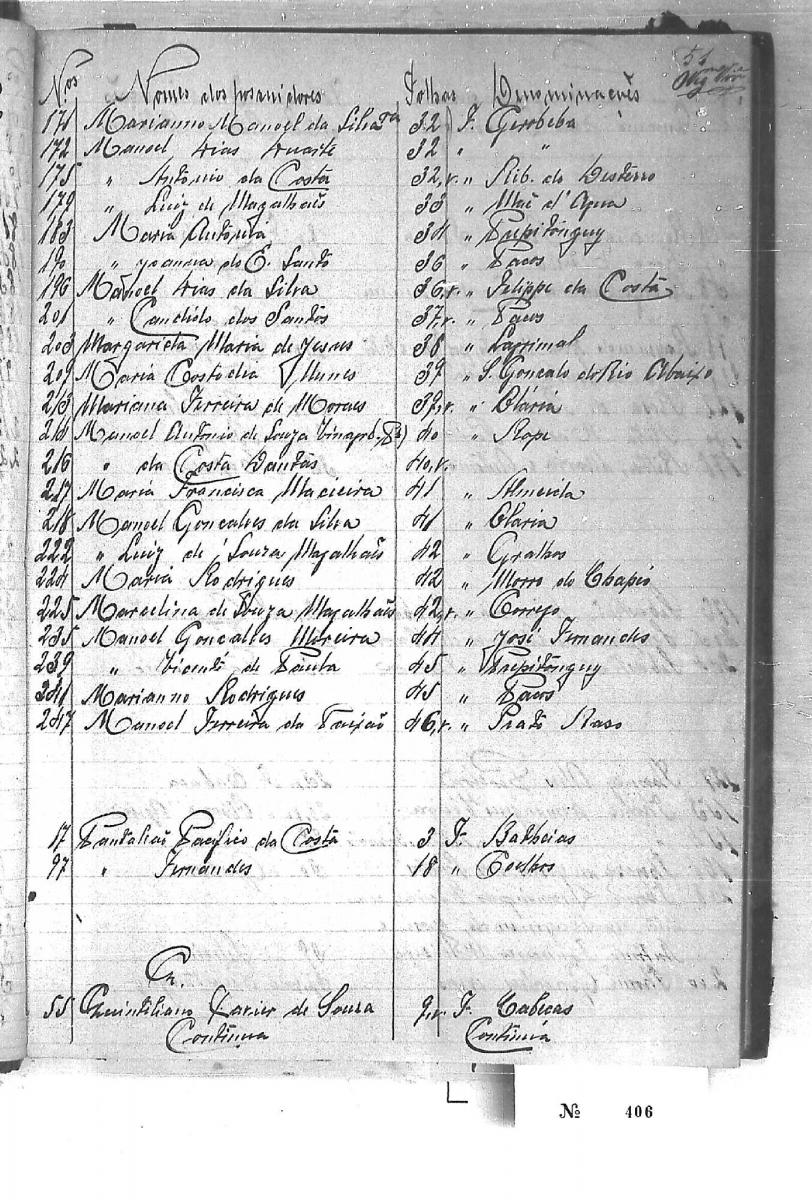 51
Nos Nomes dos possuidores Folhas Denominações
171 Marianno Manoel da Silva 32 F. Gerobeba
172 Manoel Dias Duarte 32 " "
175 " Antonio da Costa 32,v. " Rib. do Desterro
179 " Luiz de Magalhães 33 " Mãe d'Agua
183 Maria Antonia 34 " Pipitinguy
190 " Joanna do E. Santo 36 " Pacos
196 Manoel Dias da Silva 36,v. " Felippe da Costa
201 " Candido dos Santos 37,v. " Pacos
203 Margarida Maria de Jesus 38 "
209 Maria Costodia Nunes 39 " S. Goncalo do Rio Abaixo
213 Marianna Ferreira de Moraes 39,v. " Olaria
214 Manoel Antonio de Souza 40 " Rope
216 " da Costa Dantas 40,v.
217 Maria Francisca Macieira 41 " Almeida
218 Manoel Goncalves da Silva 41 " Olaria
222 " Luiz de Souza Magalhães 42 " Gralhos
224 Maria Rodrigues 42 " Morro do Chapéo
225 Marcelina de Souza Magalhães 42,v. " Correjo
235 Manoel Goncalves Moreira 44 " José Fernandes
239 " Vicente de Paula 45 " Pipitinguy
241 Marianno Rodrigues 45 " Pacos
247 Manoel Ferreira da Paixão 46,v. " Prato Raso
17 Pantalião Pacifico da Costa 3 F. Batheias
97 " Fernandes 18 " Coelhos
Q.
55 Quintiliano Xavier de Souza 9,v. F. Cabecas
Continua Continua
Nº 406